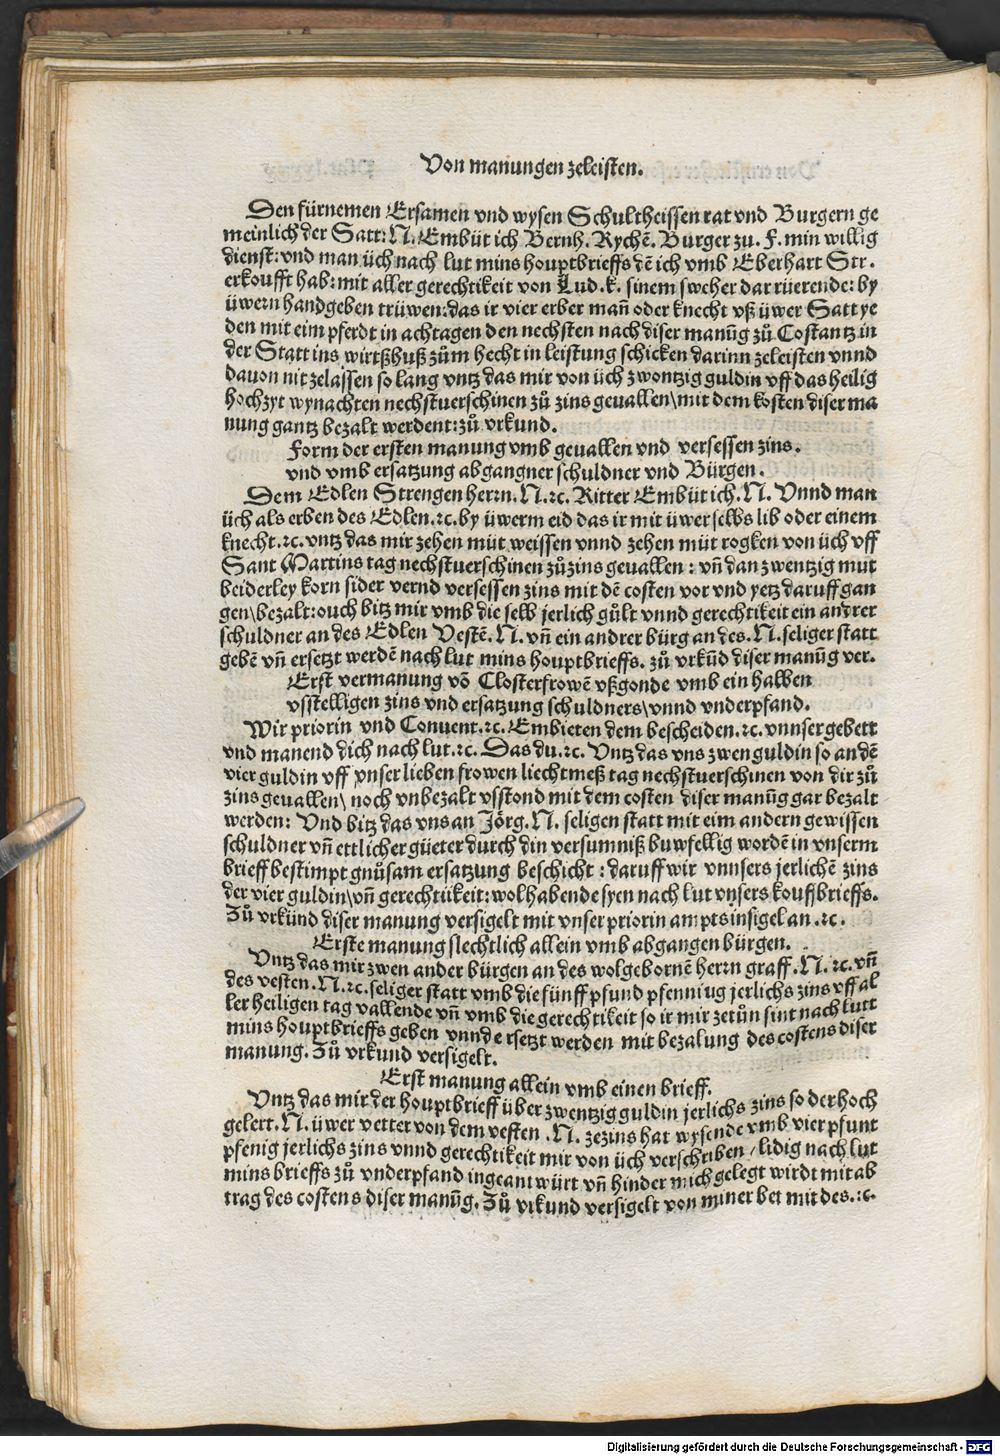 Von manungen zeleisten.
Den fürnemen Ersamen vnd wysen Schultheissen rat vnd Burgern ge
meinlich der Satt: N. Embüt ich Bernh. Rychē. Burger zu. F. min willig
dienst: vnd man üch nach lut mins houptbrieffs dē ich vmb Eberhart Str.
erkoufft hab: mit aller gerechtikeit von Lud. k. sinem sweher dar rüerende: by
üwern handgeben trüwen: das ir vier erber mañ oder knecht vß üwer Satt ye
den mit eim pferdt in achtagen den nechsten nach diser manūg zů Costantz in
der Statt ins wirtßhuß zům hecht in leistung schicken darinn zeleisten vnnd
dauon nit zelassen so lang vntz das mir von üch zwontzig guldin vff das heilig
hochzyt wynachten nechstuerschinen zů zins geuallen\ mit dem kosten diser ma
nung gantz bezalt werdent: zů vrkund.
Form der ersten manung vmb geuallen vnd versessen zins.
vnd vmb ersatzung abgangner schuldner vnd Bürgen.
Dem Edlen Strengen herrn. N. ꝛc. Ritter Embüt ich. N. Vnnd man
üch als erben des Edlen. ꝛc. by üwerm eid das ir mit üwer selbs lib oder einem
knecht. ꝛc. vntz das mir zehen müt weissen vnnd zehen müt rogken von üch vff
Sant Martins tag nechstuerschinen zů zins geuallen: vñ dan zwentzig mut
beiderley korn sider vernd versessen zins mit dē costen vor vnd yetz daruff gan
gen\ bezalt: ouch bitz mir vmb die selb jerlich gült vnnd gerechtikeit ein andrer
schuldner an des Edlen Vestē. N. vñ ein andrer bürg an des. N. seliger statt
gebē vñ ersetzt werdē nach lut mins houptbrieffs. zů vrkūd diser manūg ver.
Erst vermanung vō Closterfrowē vßgonde vmb ein halben
vsstelligen zins vnd ersatzung schuldners\ vnnd vnderpfand.
Wir priorin vnd Conuent. ꝛc. Embieten dem bescheiden. ꝛc. vnnser gebett
vnd manend dich nach lut. ꝛc. Das du. ꝛc. Vntz das vns zwen guldin so an dē
vier guldin vff vnser lieben frowen liechtmeß tag nechstuerschinen von dir zů
zins geuallen\ noch vnbezalt vsstond mit dem costen diser manūg gar bezalt
werden: Vnd bitz das vns an Jörg. N. seligen statt mit eim andern gewissen
schuldner vñ ettlicher güeter durch din versumniß buwfellig wordē in vnserm
brieff bestimpt gnůsam ersatzung beschicht: daruff wir vnnsers jerlichē zins
der vier guldin\ vñ gerechtikeit: wolhabende syen nach lut vnsers kouffbrieffs.
Zů vrkünd diser manung versigelt mit vnser priorin ampts insigel an. ꝛc.
Erste manung slechtlich allein vmb abgangen bürgen.
Vntz das mir zwen ander bürgen an des wolgebornē herrn graff. N. ꝛc. vñ
des vesten. N. ꝛc. seliger statt vmb die fünff pfund pfenni ug jerlichs zins vff al
ler heiligen tag vallende vñ vmb die gerechtikeit so ir mir zetůn sint nach lutt
mins houptbrieffs geben vnnd e rsetzt werden mit bezalung des costens diser
manung. Zů vrkund versigelt.
Erst manung allein vmb einen brieff.
Vntz das mir der houptbrieff über zwentzig guldin jerlichs zins so der hoch
gelert. N. üwer vetter von dem vesten. N. zezins hat wysende vmb vier pfunt
pfenig jerlichs zins vnnd gerechtikeit mir von üch verschriben / lidig nach lut
mins brieffs zů vnderpfand ingeantwürt vñ hinder mich gelegt wirdt mit ab
trag des costens diser manūg. Zů vrkund versigelt von miner bet mit des. ꝛc.
Digitalisierung gefördert durch die Deutsche Forschungsgemeinschaft - DFG